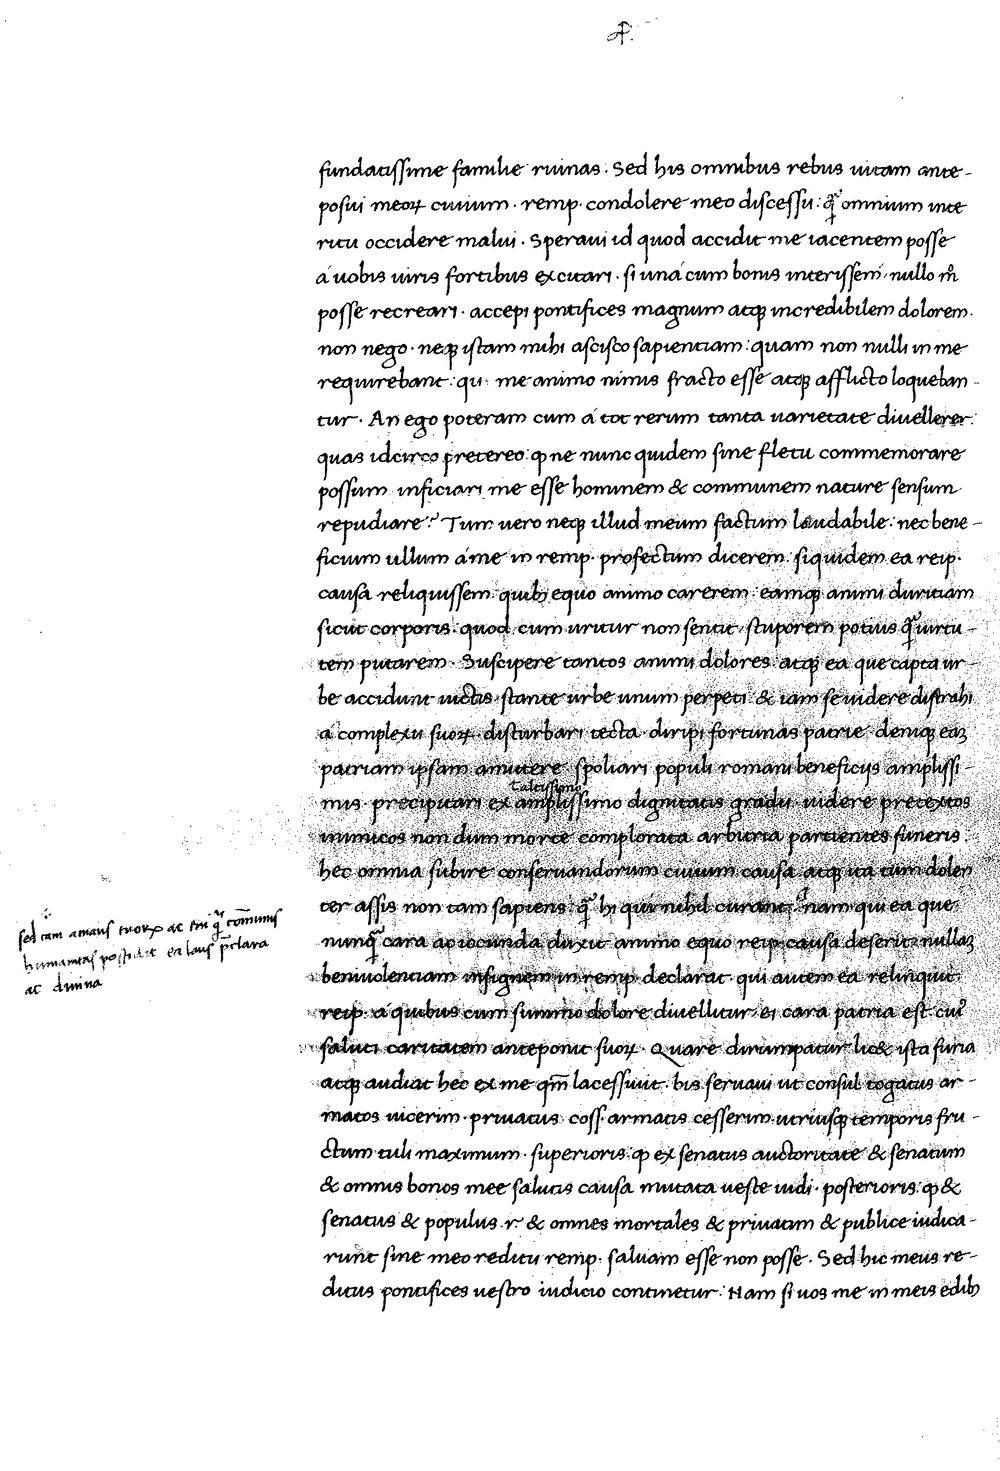 fundatissime familie ruinas. Sed his omnibus rebus uitam ante-
posui meoꝝ ciuium. remp. condolere meo discessu: q̃ omnium inte
ritu occidere malui. Speraui id quod accidit me iacentem posse
á uobis uiris fortibus excitari. si uná cum bonis interissem: nullo m̊
posse recreari. accepi pontifices magnum atqꝫ incredibilem dolorem.
non nego. neqꝫ istam mihi ascisco sapientiam: quam non nulli in me
requirebant: qui me animo nimis fracto esse atqꝫ afflicto loqueban-
tur. An ego poteram cum á tot rerum tanta uarietate diuellerer.
quas idcirco pretereo: ꝙ ne nunc quidem sine fletu commemorare
possum inficiari me esse hominem & communem nature sensum
repudiare? Tum uero neqꝫ illud meum factum laudabile: nec bene-
ficium ullum á me in remp. profectum dicerem: siquidem ea reip.
causa reliquissem: quibꝫ equo animo carerem: eamqꝫ animi duritiam
sicut corporis. quod cum uritur non sentit. stuporem potius q̃ uirtu-
tem putarem. Suscipere tantos animi dolores: atqꝫ ea que capta ur-
be accidunt uictis. stante urbe unum perpeti: & iam se uidere distrahi
á complexu suoꝝ. disturbari tecta. diripi fortunas patrie. deniqꝫ eaꝫ
patriam ipsam amittere. spoliari populi romani beneficijs amplissi-
Laltissimo
mis. precipitari ex amplissimo dignitatis gradu. uidere pretextos
inimicos non dum morte complorata arbitria partientes funeris.
hec omnia subire conseruandorum ciuium causa. atqꝫ ita cum dolen
ter assis non tam sapiens. q̃ hi qui nihil curant. nam qui ea que
nunq̃ cara ac iocunda duxit animo equo reip. causa deserit: nullaꝫ
beniuolentiam insignem in remp. declarat. qui autem ea relinquit
reip. á quibus cum summo dolore diuellitur. ei cara patria est. cui͛
saluti caritatem anteponit suoꝝ. Quare dirumpatur lic& ista furia
atqꝫ audiat hec ex me qm̄ lacessiuit. bis seruaui ut consul togatus ar-
matos uicerim. priuatus coss. armatis cesserim. utriusqꝫ temporis fru-
ctum tuli maximum. superioris: ꝙ ex senatus auctoritate & senatum
& omnis bonos mee salutis causa mutata ueste uidi. posterioris: ꝙ &
senatus & populus. r. & omnes mortales & priuatim & publice iudica-
runt sine meo reditu remp. saluam esse non posse. Sed hic meus re-
ditus pontifices uestro iudicio continetur. Nam si uos me in meis edibꝫ
sed tam amans tuoꝝ ac tui q̃ cōmunis
humanitas postulat ea laus p̄clara
ac diuina